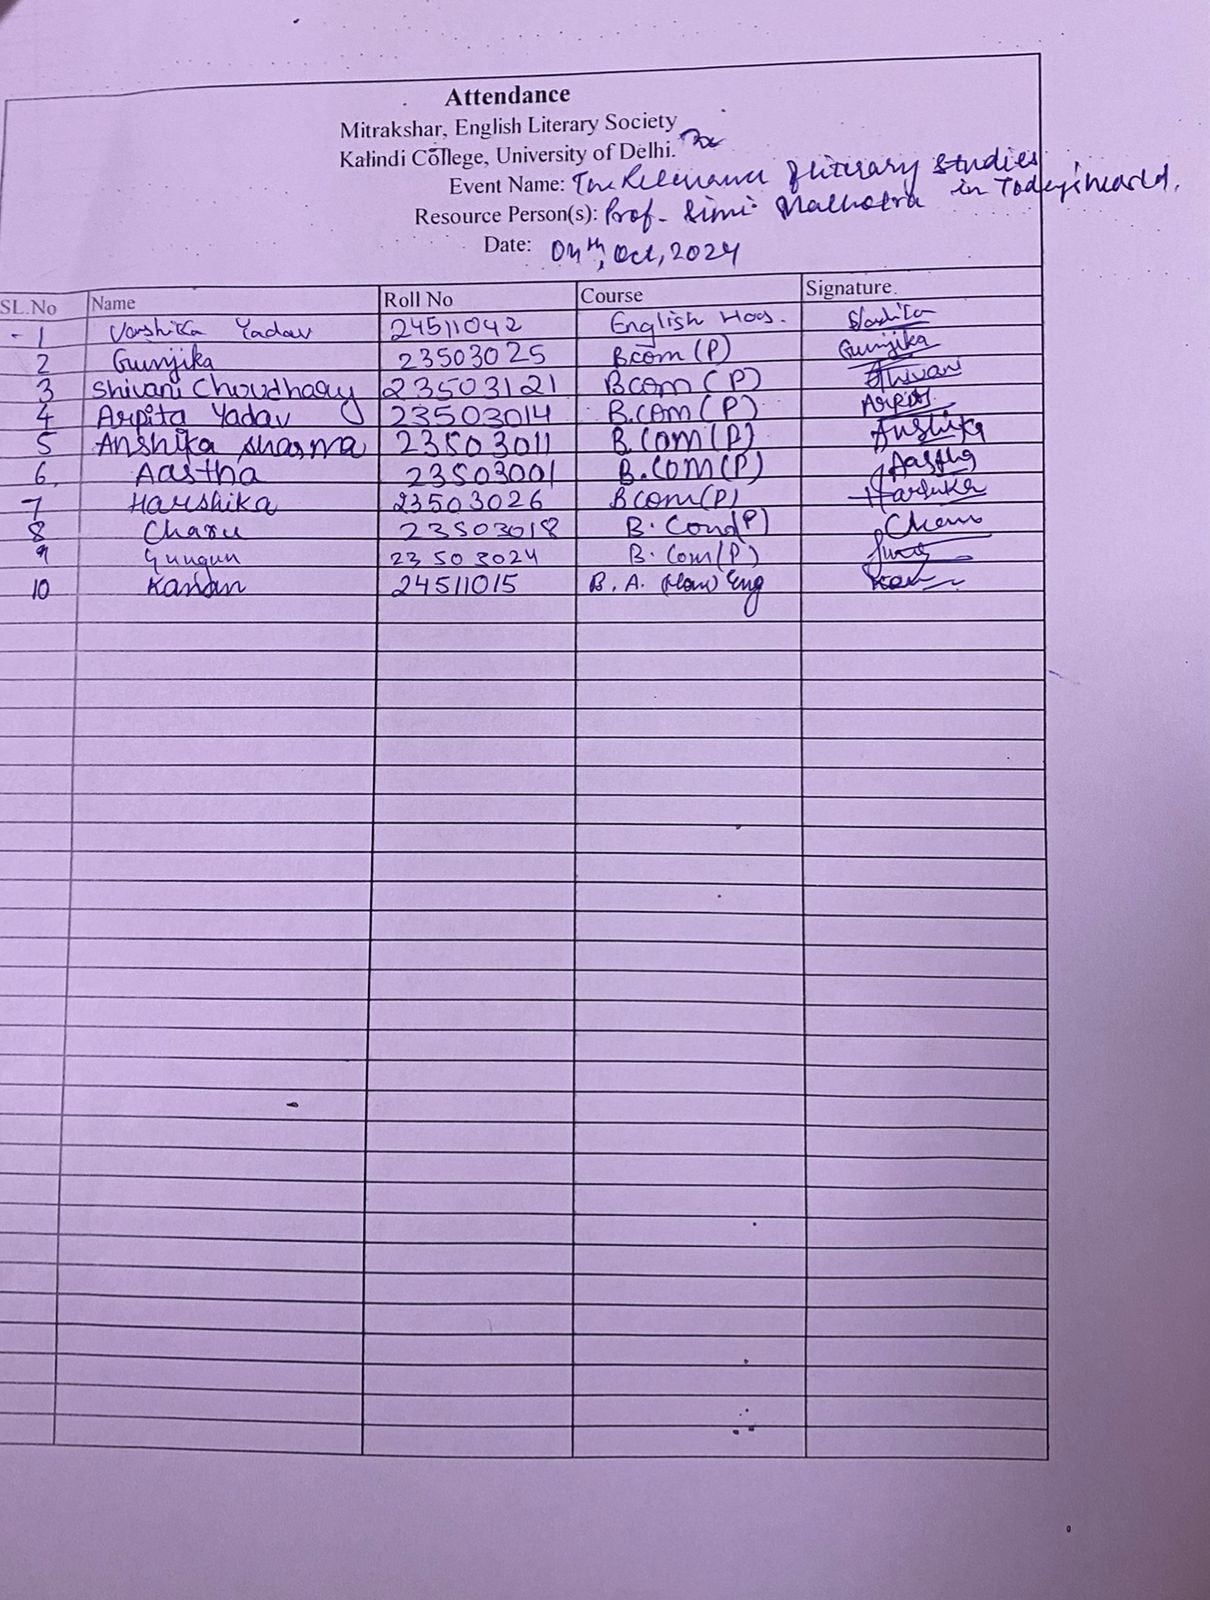 Attendance
Mitrakshar, English Literary Society
Kalindi College, University of Delhi.
Event Name: The Relevance of literary studies in Today's world.
Resource Person(s): Prof. Simi Malhotra
Date: 04th, Oct, 2024
SL.No Name Roll No Course Signature
1 Varshika Yadav 24511042 English Hons.
2 Gunjika 23503025 Bcom (P) Gunjika
3 Shivani Choudhary 23503121 Bcom (P) Shivani
4 Arpita Yadav 23503014 B.com (P) Arpita
5 Anshika sharma 23503011 B.com (P) Anshika
6. Aastha 23503001 B.com(P) Aastha
7 Harshika 23503026 Bcom(P) Harshika
8 Charu 23503018 B.Com(P) Charu
9 Gungun 23503024 B.Com(P)
10 Kanan 24511015 B.A. (Hon) Eng